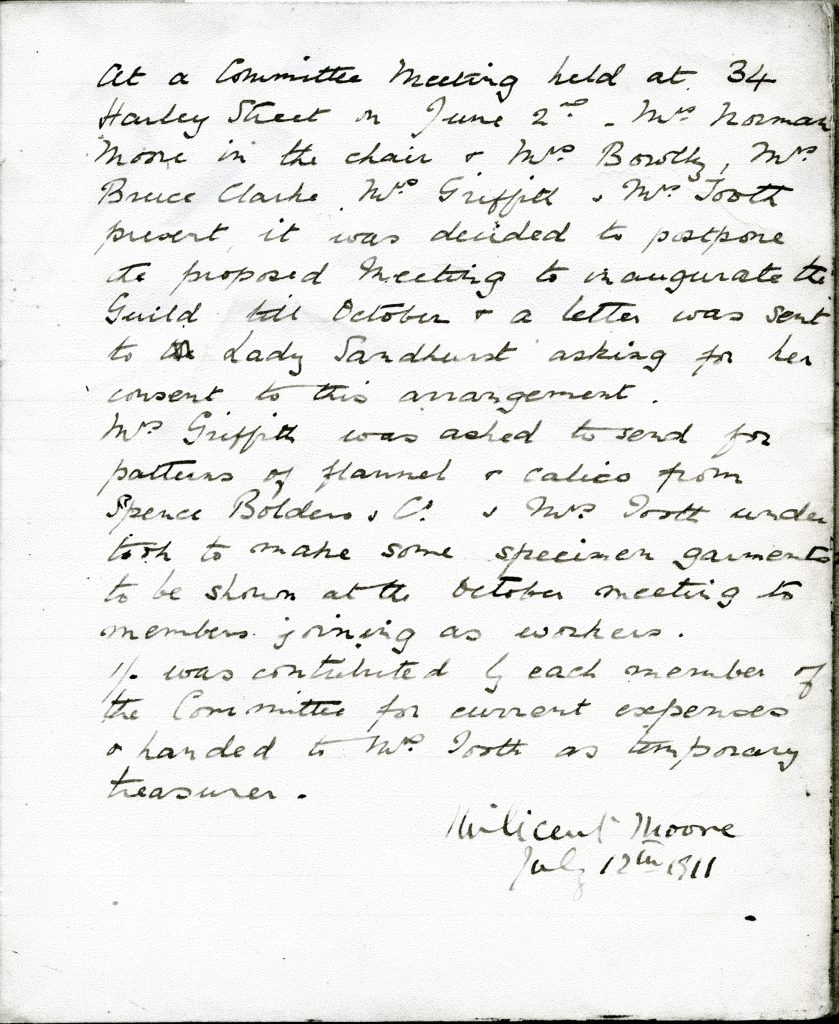 At a Committee Meeting held at 34
Harley Street on June 2nd - Mrs Norman
Moore in the chair & Mrs Bowlby, Mrs
Bruce Clarke Mrs Griffith & Mrs Tooth
present, it was decided to postpone
the proposed Meeting to inaugurate the
Guild till October & a letter was sent
to Lady Sandhurst asking for her
consent to this arrangement.
Mrs Griffith was asked to send for
patterns of flannel & calico from
Spence Boldero & Co. & Mrs Tooth under
took to make some specimen garments
to be shown at the October meeting to
members joining as workers.
1/- was contributed by each member of
the Committee for current expenses
& handed to Mrs Tooth as temporary
treasurer.
Milicent Moore
July 12th 1911